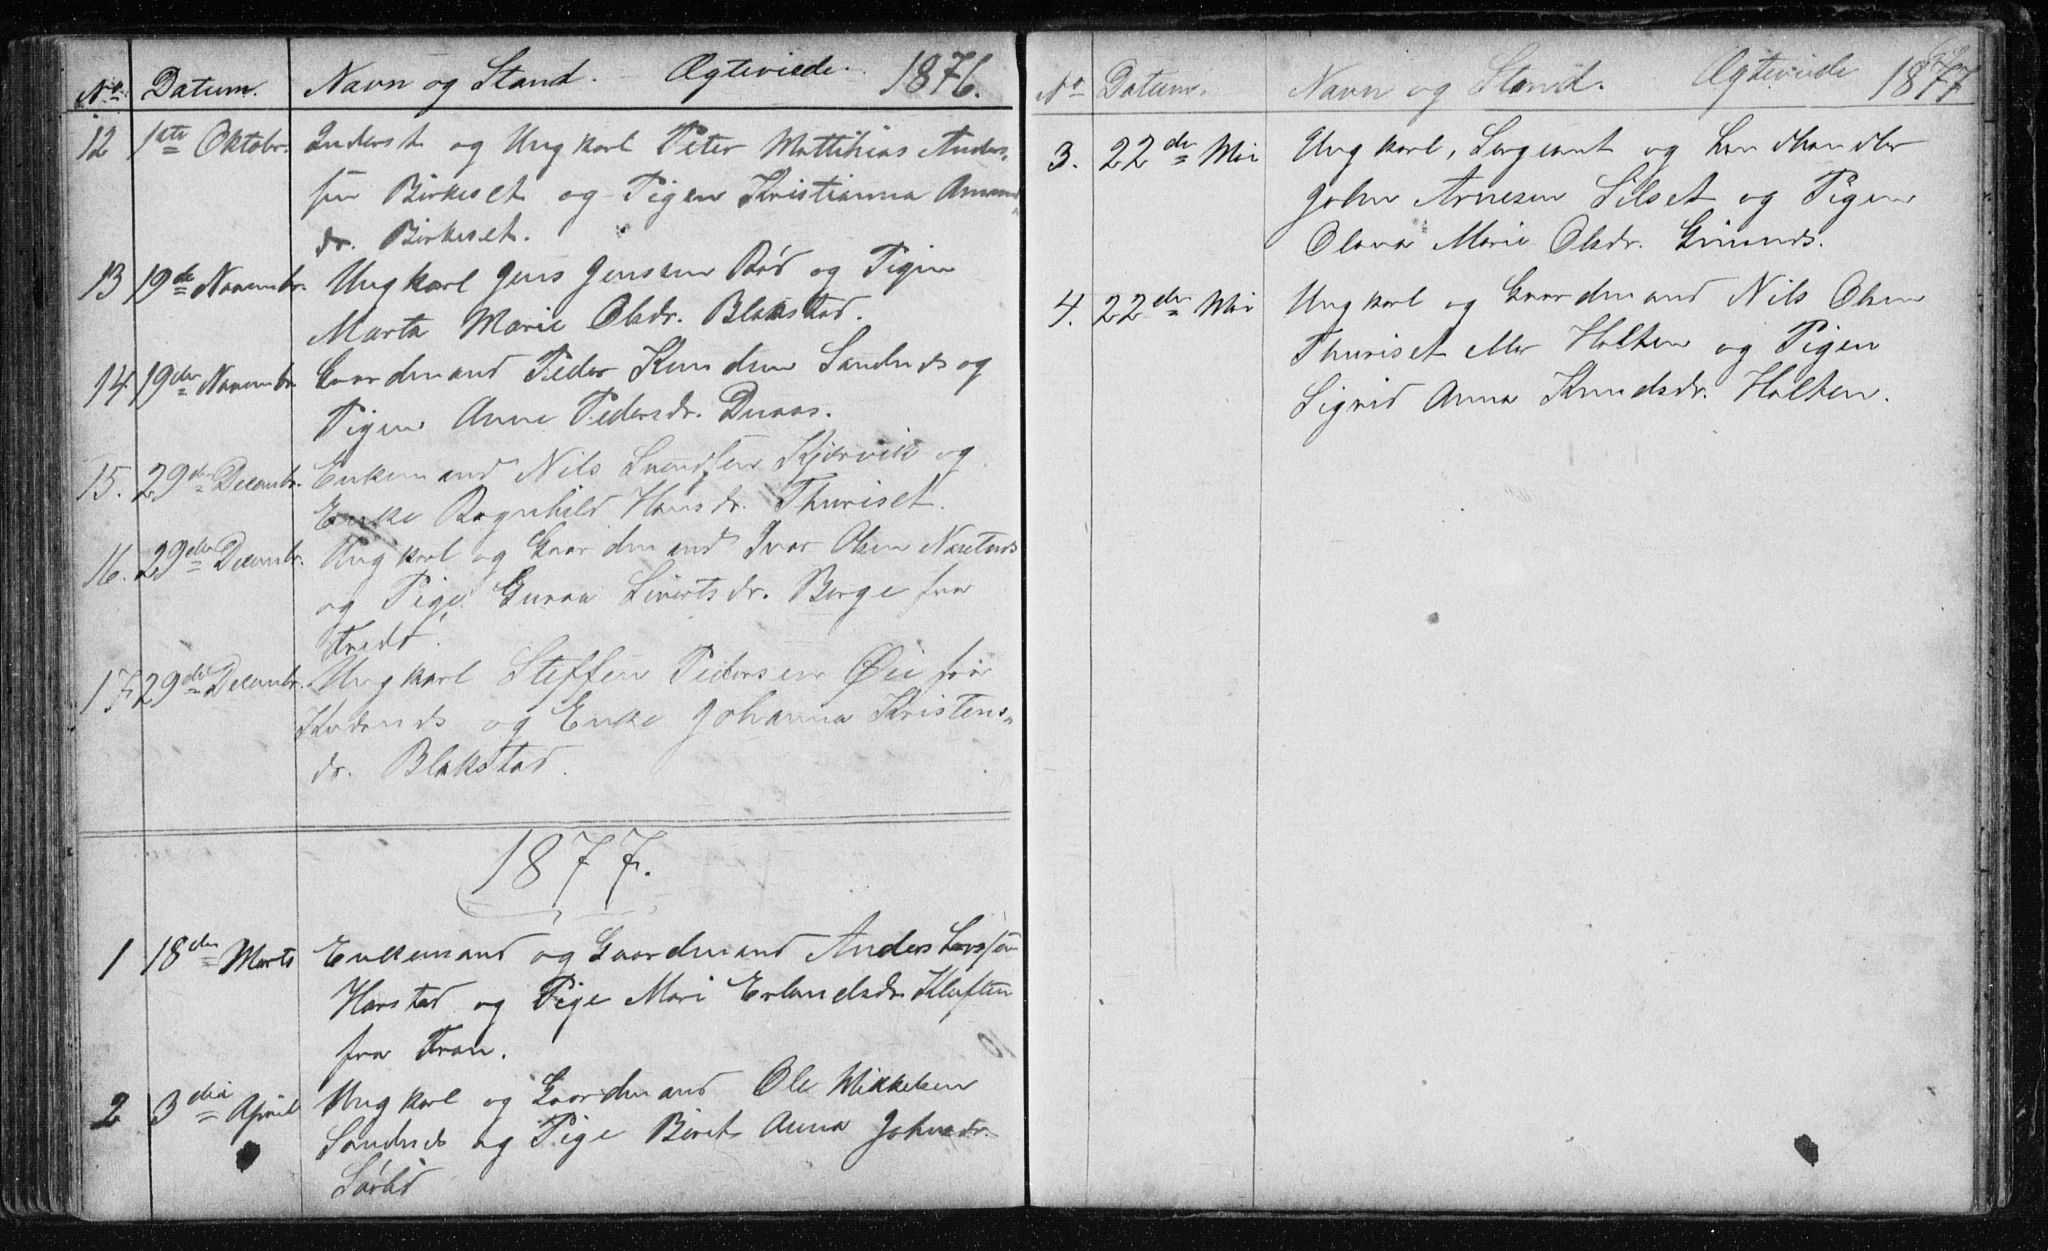 No. Datum. Navn og Stand. Ægteviede. 1876.
12 1ste Oktobr. Inderst og Ungkarl Peter Matthias Anders-
sen Birkeset og Pigen Kristianna Amund-
dr. Birkeset.
13 19de Novembr. Ungkarl Jens Jensen Rød og Pigen
Marta Marie Olsdr. Blakstad.
14 19de Novembr. Gaardmand Peder Knudsen Sandnes og
Pigen Anne Pedersdr. Duaas.
15. 29de Decembr. Enkemand Nils Svendsen Kjørvik og
Enke Ragnhild Hansdr. Thuriset.
16. 29de Decembr. Ungkarl og Gaardmand Ivar Olsen
og Pige Guraa Sivertsdr. Berge fra
Fredø.
17 29de Decembr. Ungkarl Steffen Pedersen Øie fra
Kvernes og Enke Johanna Kristens-
dr. Blakstad.
1877.
1 18de Marts Enkemand og Gaardmand Anders Larssen
Harstad og Pige Mari Erlandsdr. Kluften
fra Tran.
2 3die April Ungkarl og Gaardmand Ole Mikkelsen
Sandnes og Pige Beret Anna Johnsdr.
Sørlid
No Datum. Navn og Stand. Ægteviede 1877
3. 22de Mai Ungkarl, Sergeant og Landhandler
John Arnesen Silset og Pigen
Olava Marie Olsdr. Gimnes.
4. 22de Mai Ungkarl og Gaardmand Nils Olsen
Thuriset eller Holten og Pigen
Sigrid Anna Knudsdr. Holten.